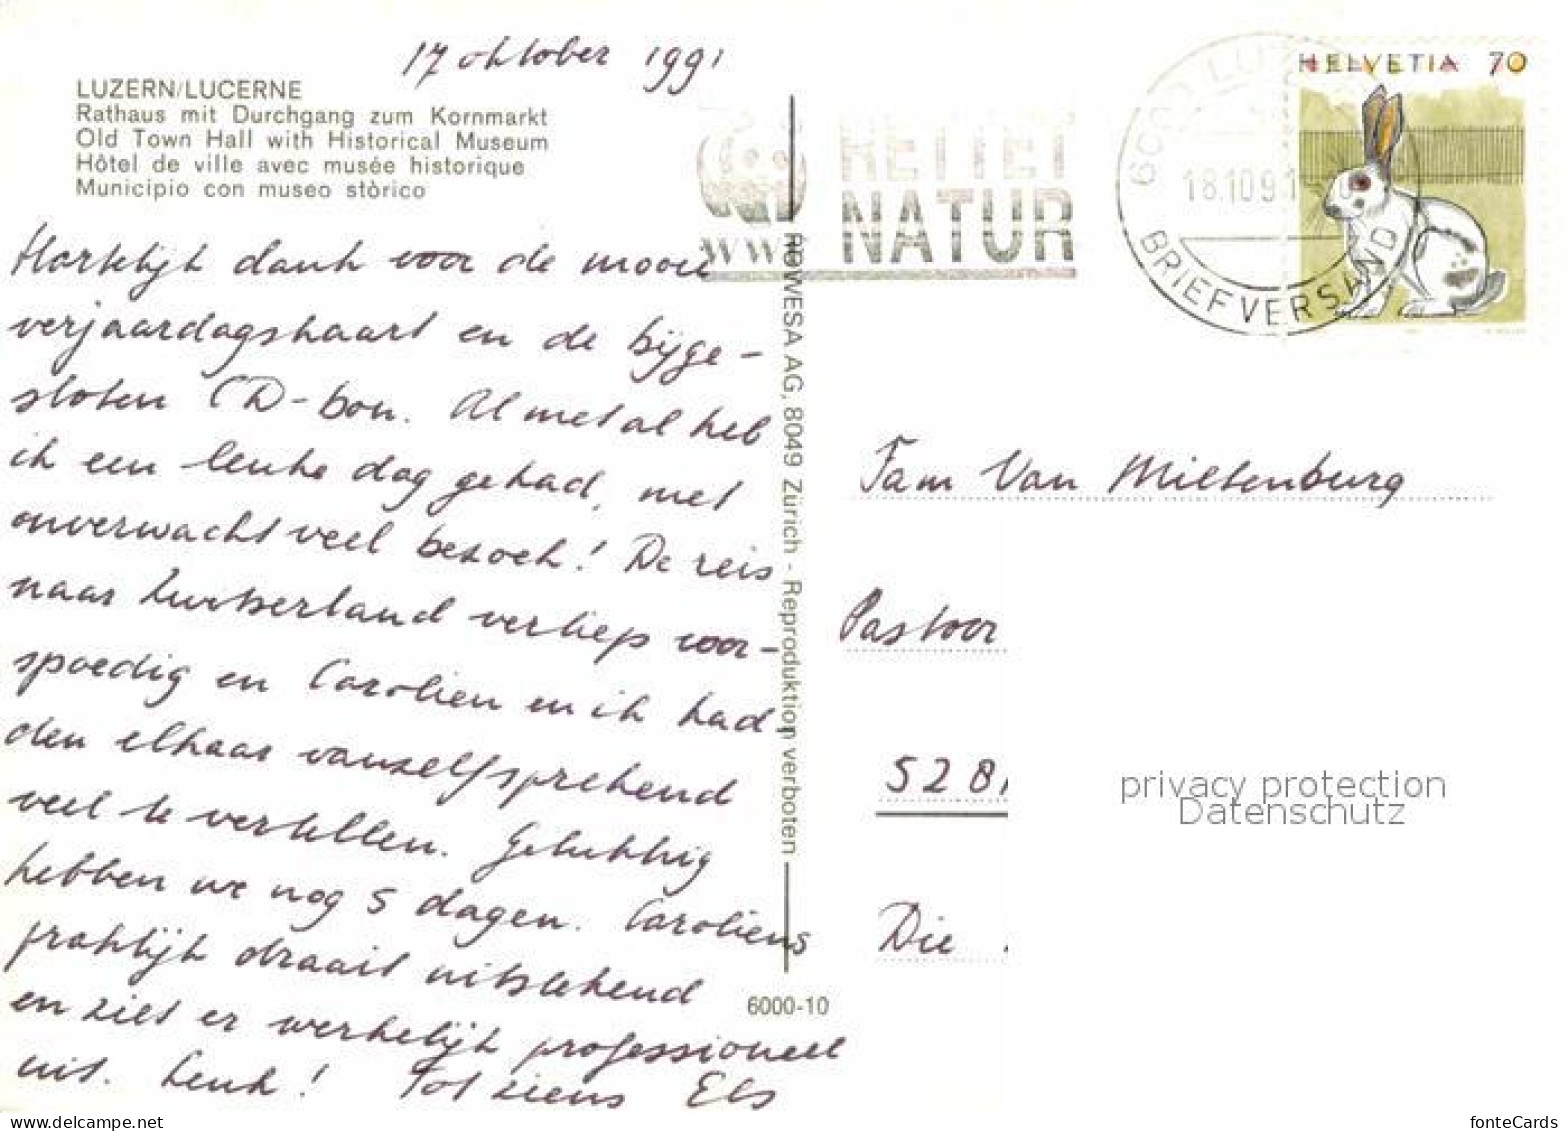 17 oktober 1991
LUZERN/LUCERNE
Rathaus mit Durchgang zum Kornmarkt
Old Town Hall with Historical Museum
Hôtel de ville avec musée historique
Municipio con museo stòrico
Hartelijk dank voor de mooie
verjaardagskaart en de bijge-
sloten CD-bon. Al met al heb
ik een leuke dag gehad, met
onverwacht veel bezoek! De reis
naar Zwitserland verliep voor-
spoedig en Carolien en ik had
den elkaar vanzelfsprekend
veel te vertellen. Gelukkig
hebben we nog 5 dagen. Caroliens
praktijk draait uitstekend
en ziet er werkelijk professioneel
uit. Leuk! Tot ziens Els
ROWESA AG, 8049 Zürich - Reproduktion verboten
6000-10
RETTET
NATUR
WWF
6000 LUZERN
18.10.91
BRIEFVERSAND
HELVETIA 70
Fam Van Miltenburg
Pastoor
528
Die
privacy protection
Datenschutz
fonteCards